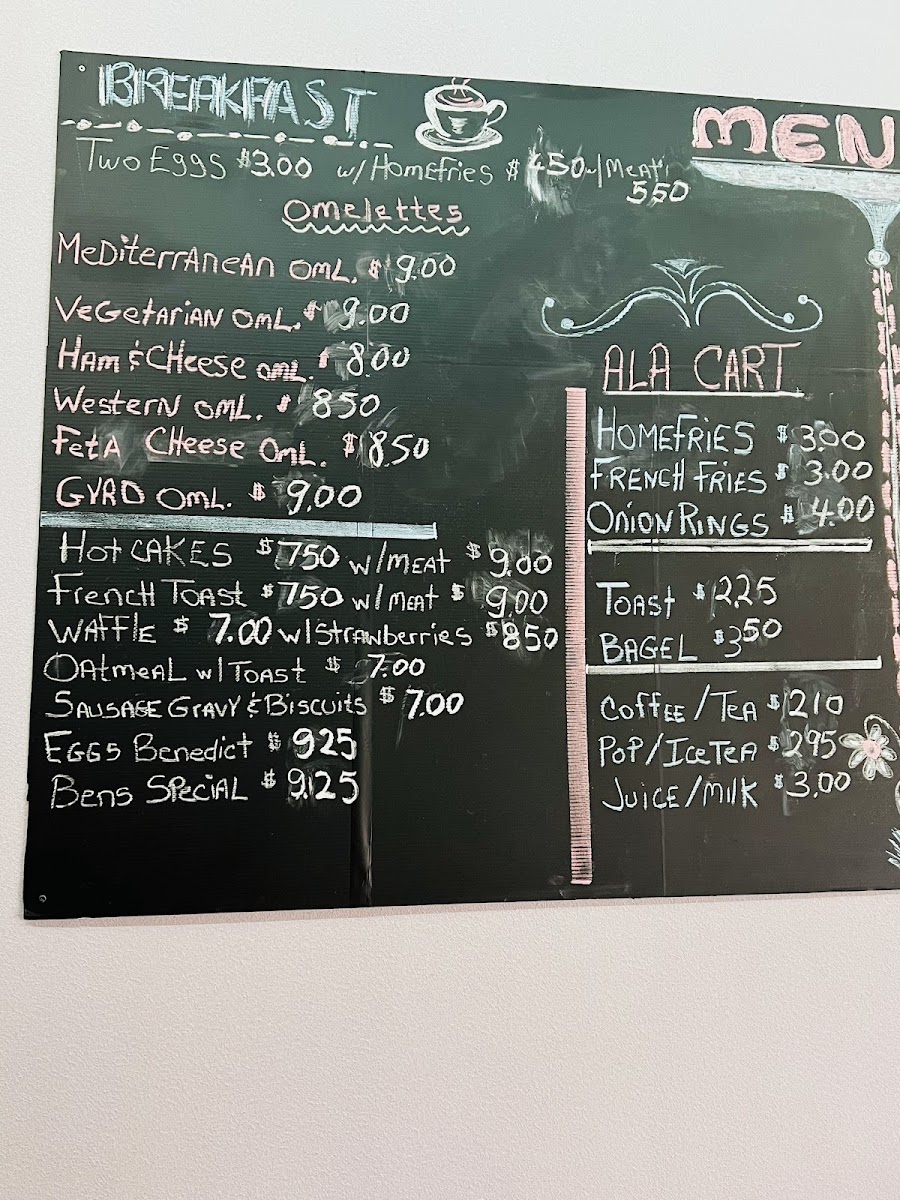 BREAKFAST
MEN
Two Eggs $3.00 w/ Homefries $ 450 w/Meat
550
Omelettes
Mediterranean oml. $ 9.00
Vegetarian oml. $ 9.00
Ham & Cheese oml. $ 8.00
Western oml. $ 850
Feta Cheese oml. $ 8.50
Gyro oml. $ 9.00
Hot Cakes $ 750 w/meat $ 9.00
French Toast $ 750 w/ meat $ 9.00
Waffle $ 7.00 w/ Strawberries $ 850
Oatmeal w/ Toast $ 7.00
Sausage Gravy & Biscuits $ 7.00
Eggs Benedict $ 925
Bens Special $ 9.25
ALA CART
Homefries $ 3.00
French Fries $ 3.00
Onion Rings $ 4.00
Toast $ 2.25
Bagel $ 350
Coffee / Tea $ 210
Pop / Ice Tea $ 295
Juice / Milk $ 3.00